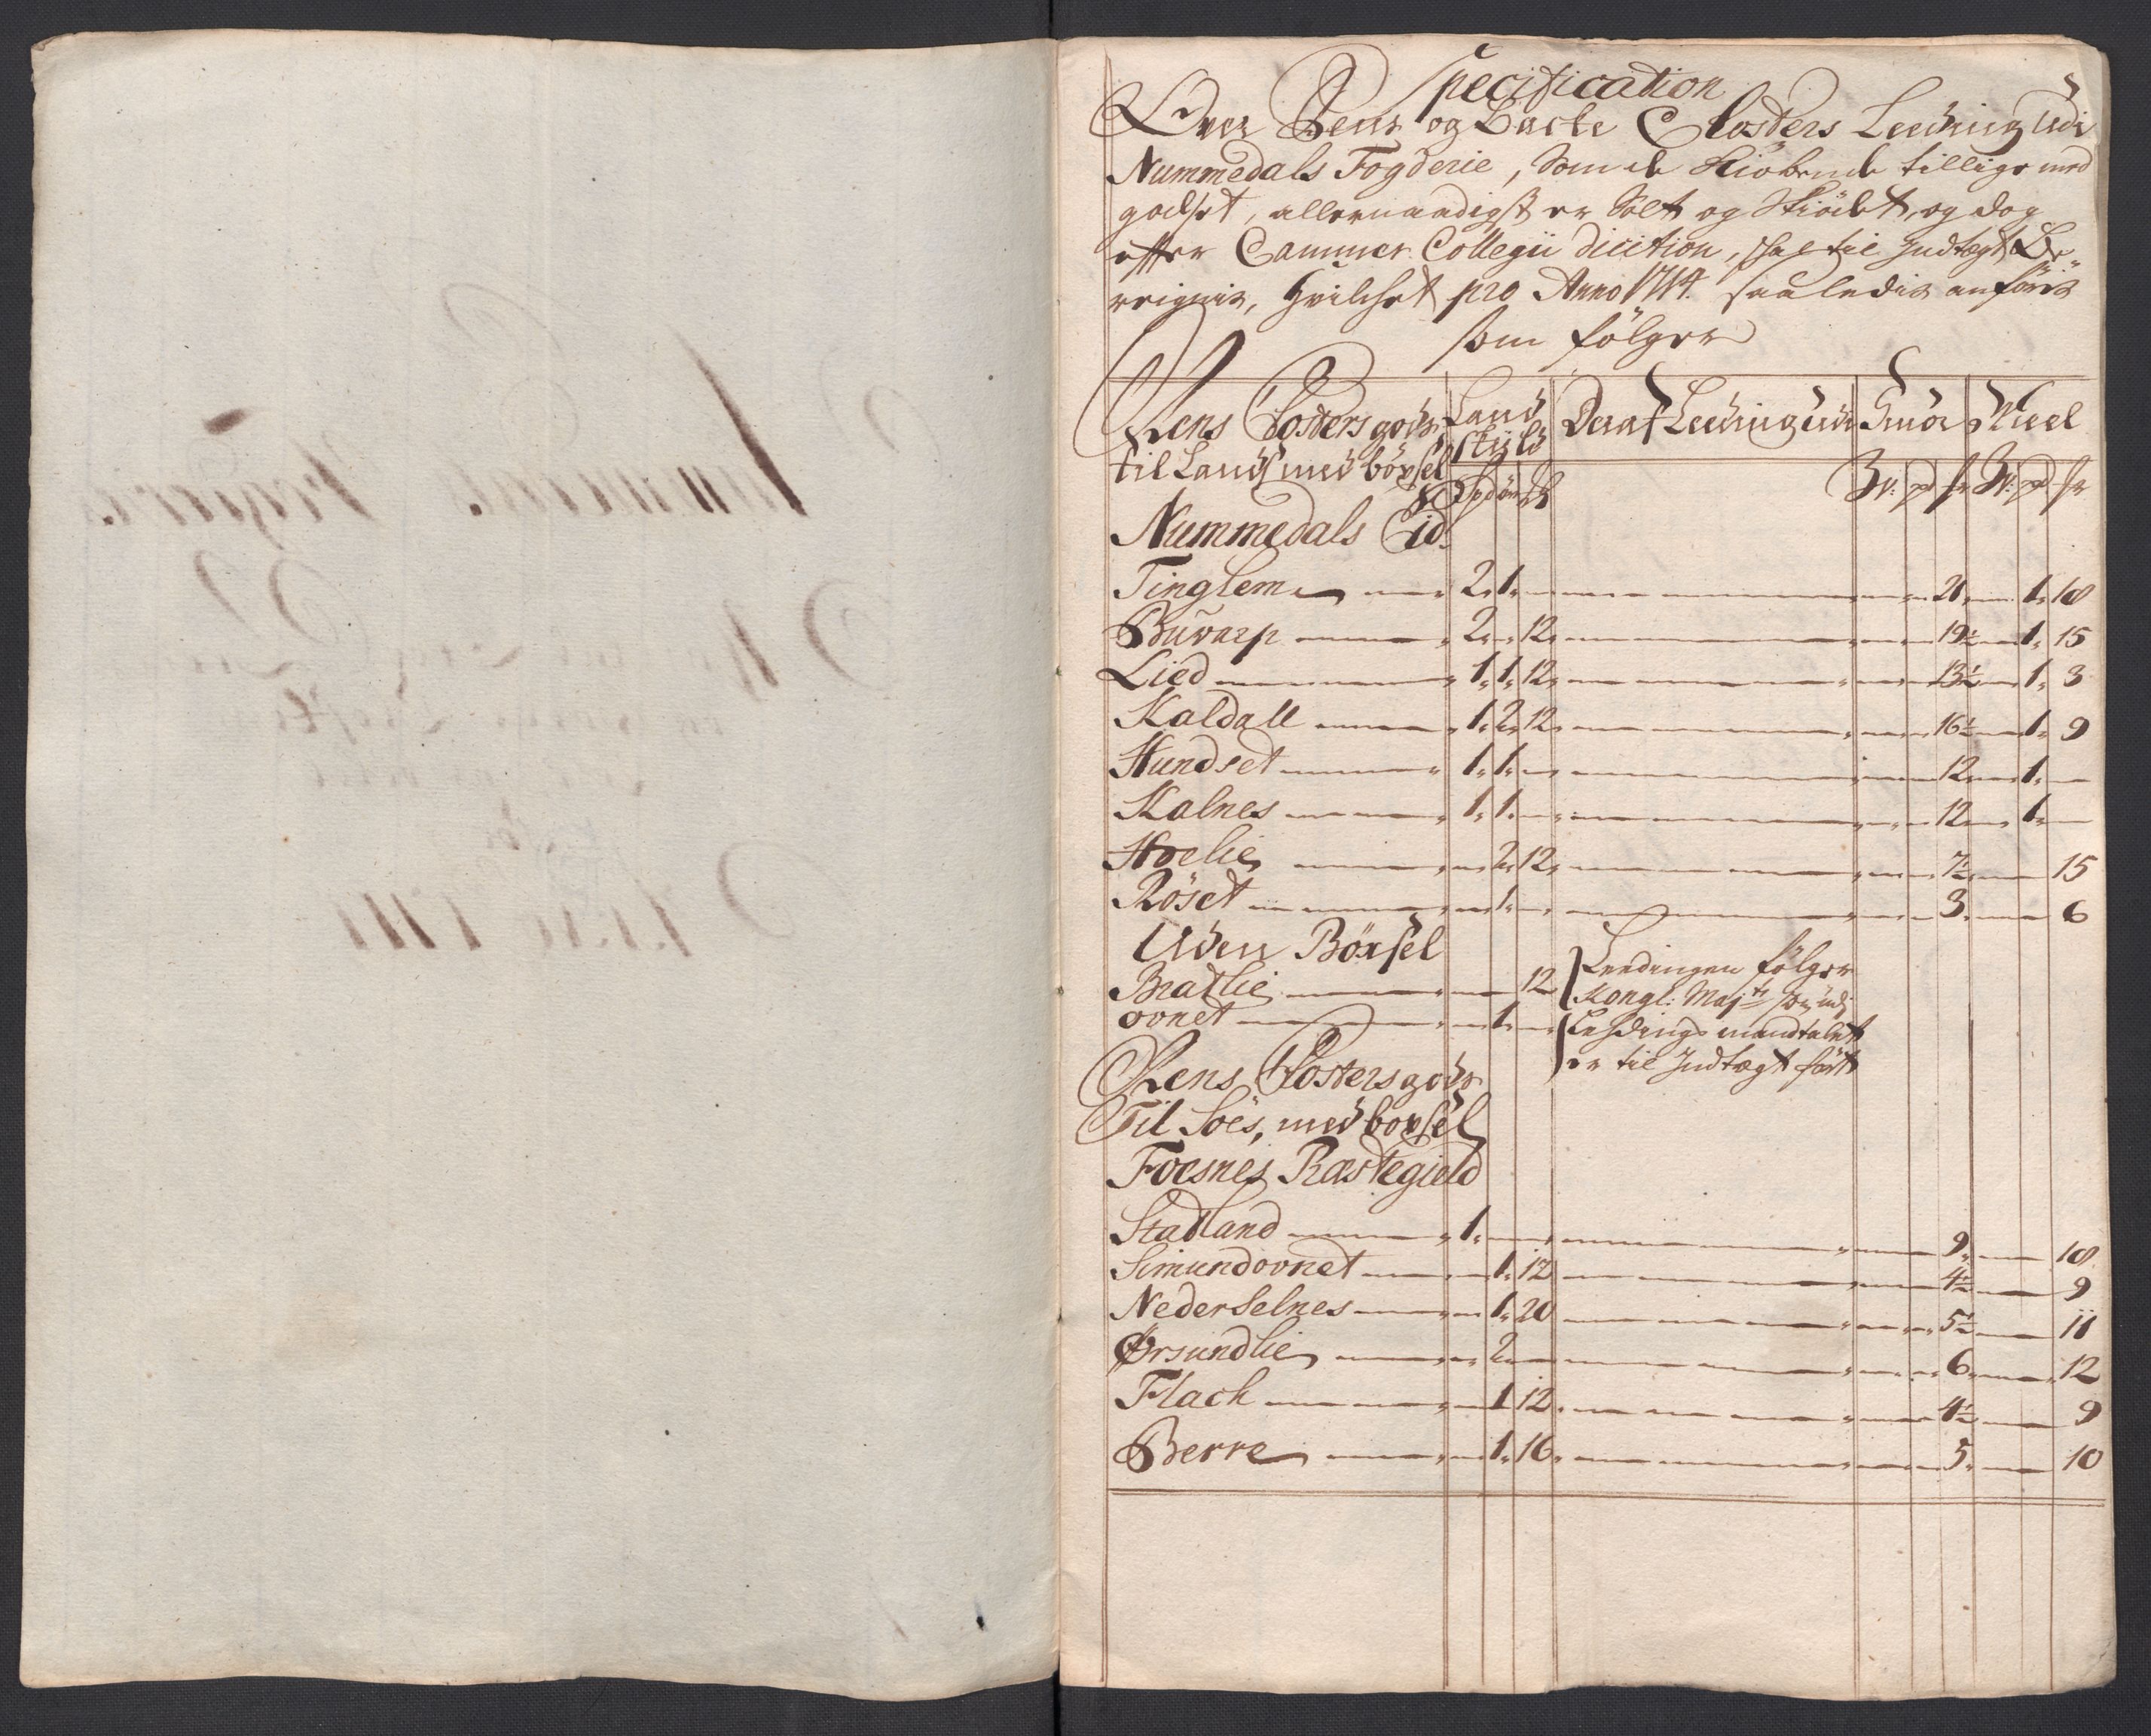 Specification
Over Rens og Backe Closters Leeding udi
Nummedals Fogderie, som de Kiöbende tillige med
godset, allernaadigst er Solt og Skiödet, og dog
effter Cammer Collegii dicition, skal til Indtægt Be-
reignis, hvilchet pro Anno 1714 saaledis anföris
som fölger
Rens Closters gods Land Deraf Leeding udi Smör Meel
til Lands med böxsel skyld
Nummedals Eid
Tinglem 2 1 21 1 18
Buvarp 2 12 19½ 1 15
Lied 1 1 12 13½ 1 3
Kaldall 1 2 12 16½ 1 9
Hundset 1 1 12 1
Kalnes 1 1 12 1
Hoelie 2 12 7½ 15
Röset 1 3 6
Uden Böxsel
Bratlie 12 Leedingen fölger
Kongl: Maj:ts
ovnet 1 Leedings mandtallet
er til Indtægt fört
Rens Closters gods
Til Söes, med böxsel
Foesnes Præstegield
Statland 1 9 18
Simundovnet 1 12 4½ 9
Nederselnes 1 20 5½ 11
Ørsundlie 2 6 12
Flach 1 12 4½ 9
Berre 1 16 5 10